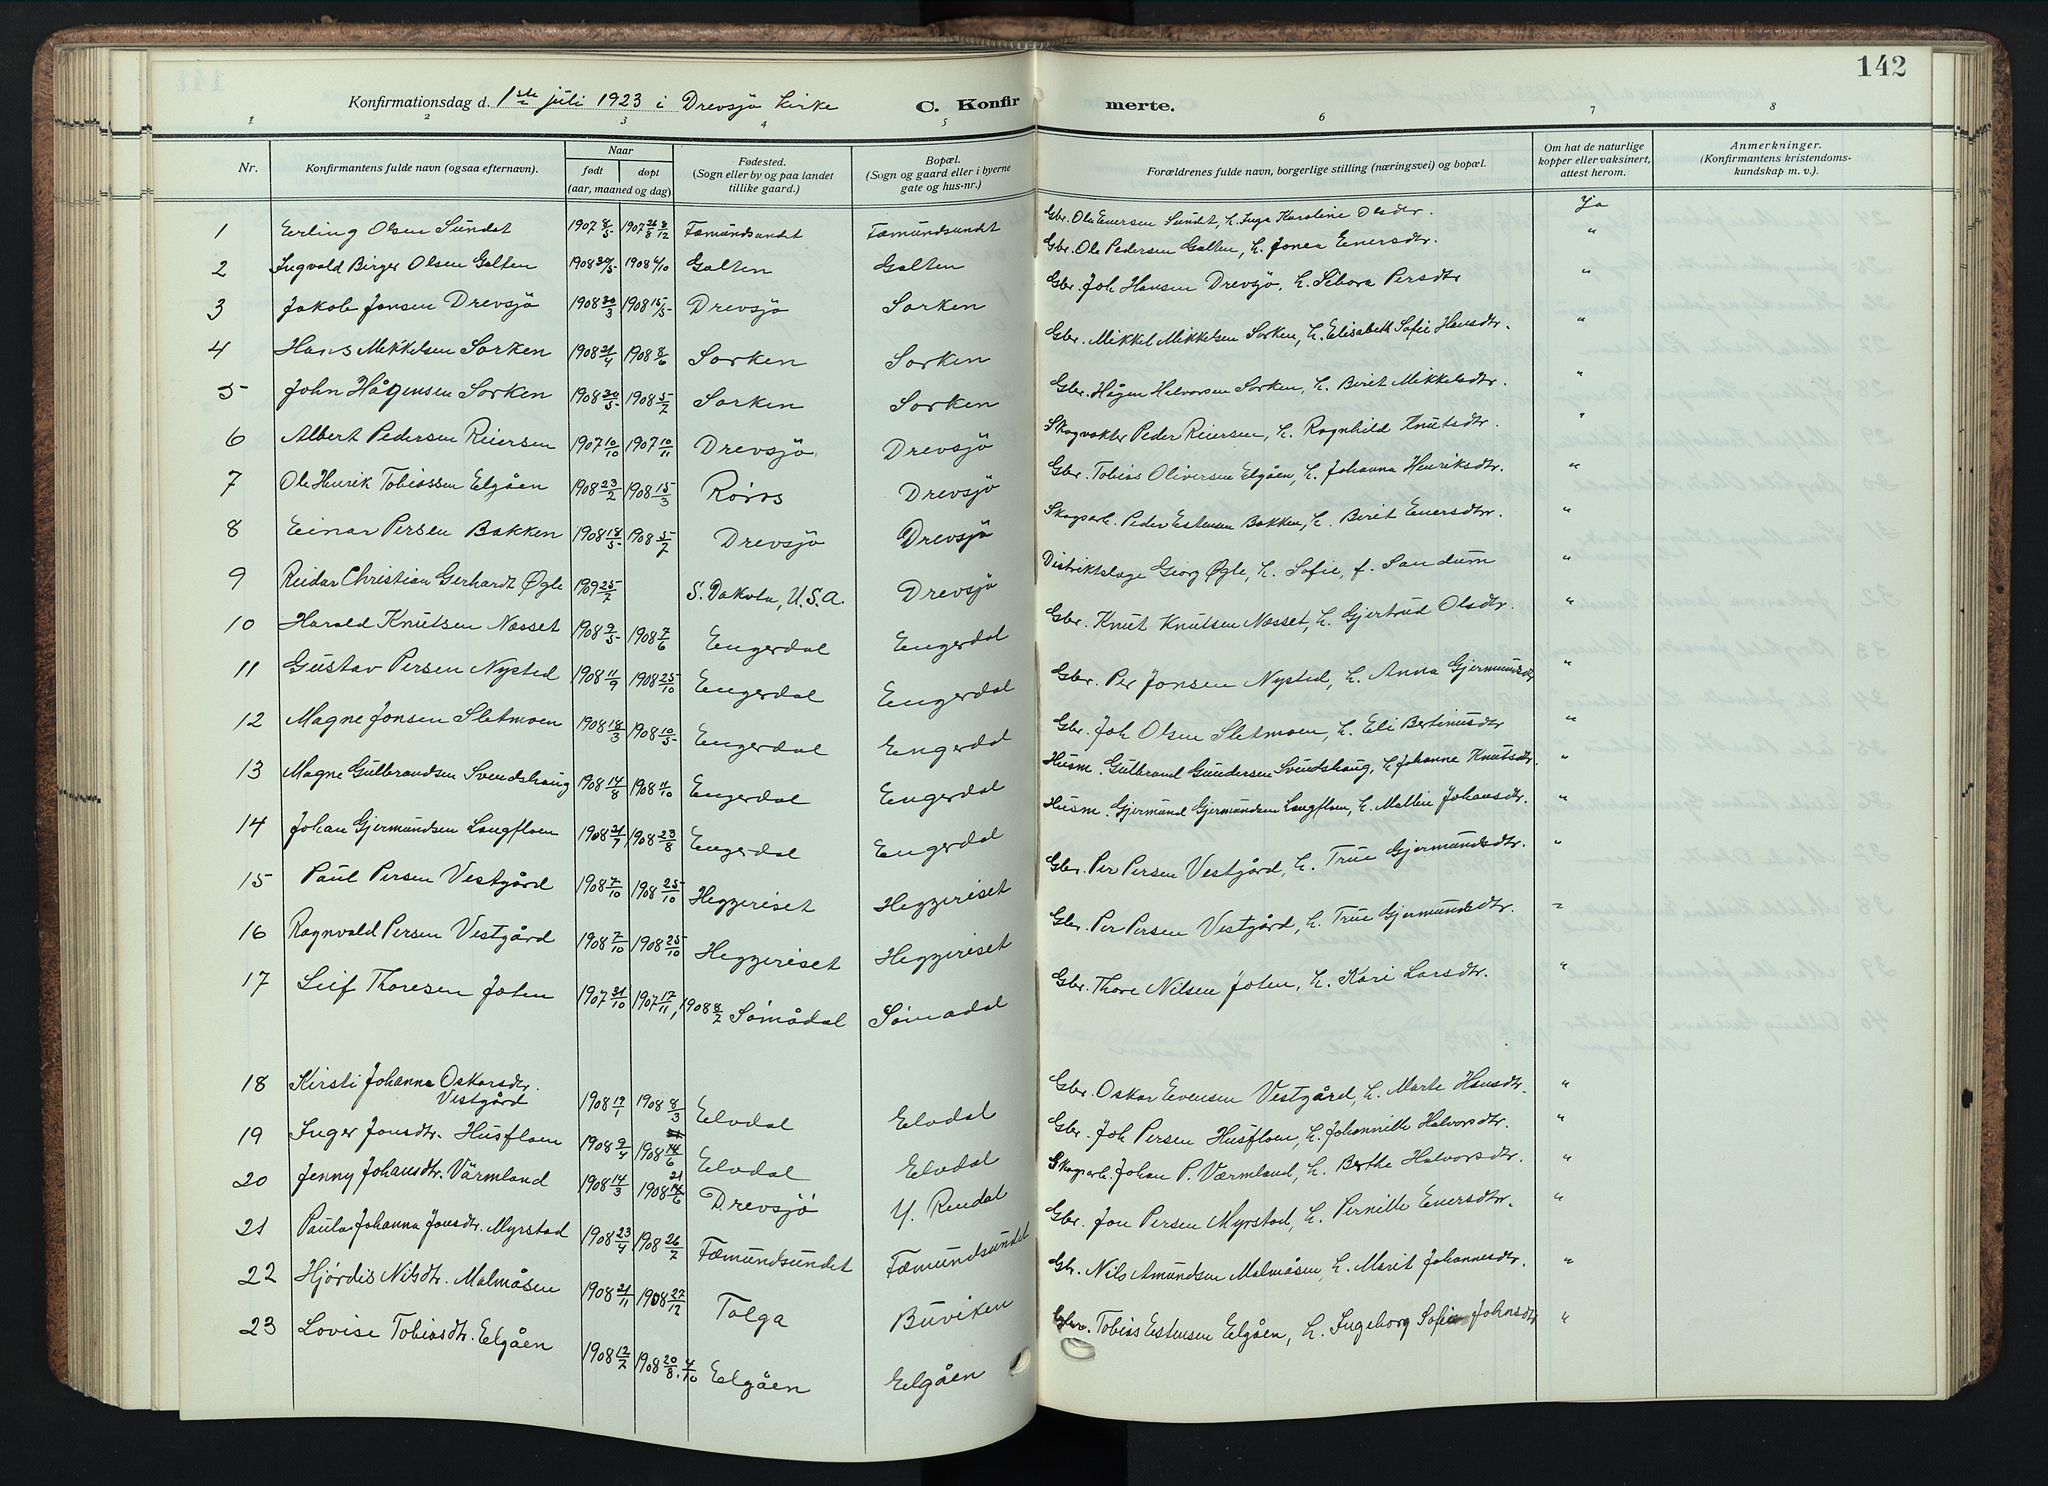 142
Konfirmationsdag d. 1ste juli 1923 i Drevsjø kirke C. Konfirmerte.
1 2 3 4 5 6 7 8
Nr. Konfirmantens fulde navn (ogsaa efternavn). Naar født døpt (aar, maaned og dag) Fødested. (Sogn eller by og paa landet tillike gaard.) Bopæl. (Sogn og gaard eller i byerne gate og hus-nr.) Forældrenes fulde navn, borgerlige stilling (næringsvei) og bopæl. Om hat de naturlige kopper eller vaksinert, attest herom. Anmerkninger. (Konfirmantens kristendoms-kundskap m. v.).
1 Erling Olsen Sundet 1907 8/5 1907 Fæmundsundet Fæmundsundet Gbr. Ola Enersen Sundet, h. Inga Karoline Olsdtr. Ja
2 Ingvald Birger Olsen Galten 1908 30/5 1908 4/10 Galten Galten Gbr. Ole Pedersen Galten, h. Jonea Enersdtr. "
3 Jakob Jonsen Drevsjö 1908 30/3 1908 15/5 Drevsjö Sorken Gbr. Joh Hansen Drevsjö, h. Sibora Persdtr "
4 Hans Mikkelsen Sorken 1908 21/4 1908 8/6 Sorken Sorken Gbr. Mikkel Mikkelsen Sorken, h. Elisabeth Sofie Hansdtr. "
5 John Hågensen Sorken 1908 20/5 1908 5/7 Sorken Sorken Gbr. Hågen Halvorsen Sorken, h. Beret Mikkelsdtr. "
6 Albert Pedersen Reiersen 1907 10/10 1907 10/11 Drevsjö Drevsjö Skogvakter Peder Reiersen, h. Ragnhild Knutsdtr. "
7 Ole Henrik Tobiassen Elgåen 1908 23/2 1908 15/3 Røros Drevsjö Gbr. Tobias Oliversen Elgåen, h. Johanna Henriksdtr. "
8 Einar Persen Bakken 1908 18/5 1908 5/7 Drevsjö Drevsjö Skogsarb. Peder Estensen Bakken, h. Berit Enersdtr. "
9 Reidar Christian Gerhardt Øgle 1909 25/7 S. Dakota, U.S.A. Drevsjö Distriktslæge Georg Øgle, h. Sofie, f. Sandum "
10 Harald Knutsen Næsset 1908 9/5 1908 7/6 Engerdal Engerdal Gbr. Knut Knutsen Næsset, h. Gjertrud Olsdtr. "
11 Gustav Persen Nysted 1908 11/9 1908 25/10 Engerdal Engerdal Gbr. Per Jonsen Nysted, h. Anna Gjermundsdtr "
12 Magne Jonsen Sletmoen 1908 18/3 1908 10/5 Engerdal Engerdal Gbr. Joh Olsen Sletmoen, h. Eli Bertinusdtr "
13 Magne Gulbrandsen Svendshaug 1908 14/8 1908 11/10 Engerdal Engerdal Husm. Gulbrand Gundersen Svendshaug, h. Johanne Knutsdtr. "
14 Johan Gjermundsen Langfloen 1908 21/7 1908 23/8 Engerdal Engerdal Husm. Gjermund Gjermundsen Langfloen, h. Mallin Johansdtr. "
15 Paul Persen Vestgård 1908 7/10 1908 25/10 Heggeriset Heggeriset Gbr. Per Persen Vestgård, h. True Gjermundsdtr. "
16 Ragnvald Persen Vestgård 1908 7/10 1908 25/10 Heggeriset Heggeriset Gbr. Per Persen Vestgård, h. True Gjermundsdtr. "
17 Leif Thoresen Joten 1907 21/10 1907 17/11, 1908 8/7 Sømådal Sømådal Gbr. Thore Nilsen Joten, h. Kari Larsdtr. "
18 Kirsti Johanna Oskarsdtr. Vestgård 1908 1908 8/3 Elvdal Elvdal Gbr. Oskar Evensen Vestgård, h. Marte Hansdtr. "
19 Inger Jonsdtr. Husfloen 1908 9/4 1908 14/6 Elvdal Elvdal Gbr. Joh Persen Husfloen, h. Johannette Halvorsdtr. "
20 Jenny Johansdtr. Värmland 1908 14/3 1908 21/6 Drevsjö Y. Rendal Skogsarb. Johan P. Værmland, h. Berthe Halvorsdtr. "
21 Paula Johanna Jonsdtr. Myrstad 1908 23/4 1908 26/7 Fæmundsundet Fæmundsundet Gbr. Jon Persen Myrstad, h. Pernille Enersdtr. "
22 Hjørdis Nilsdtr. Malmåsen 1908 21/11 1908 27/12 Tolga Buviken Gbr. Nils Amundsen Malmåsen, h. Marit Johannesdtr. "
23 Lovise Tobiasdtr. Elgåen 1908 12/7 1908 20/8. 4/10 Elgåen Elgåen Gbr. Tobias Estensen Elgåen, h. Ingeborg Sofie Johnsdtr "